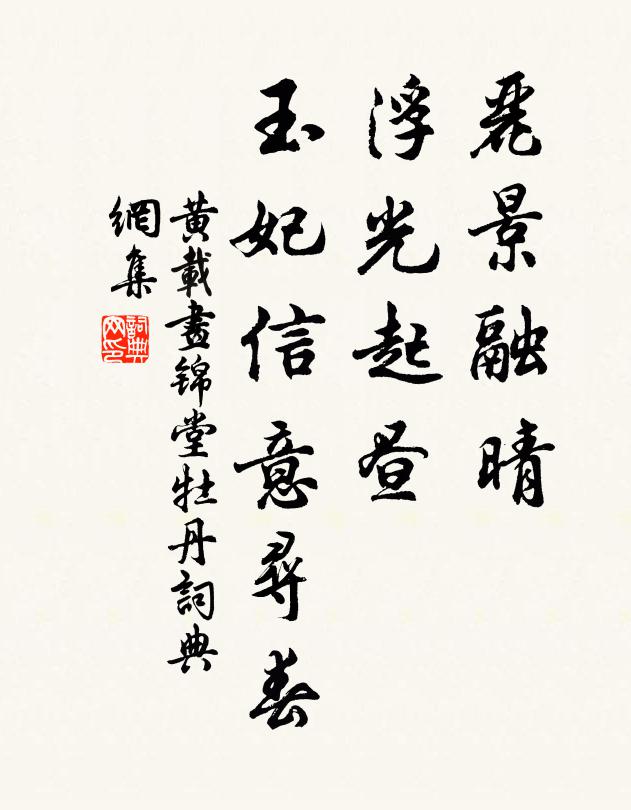 麗景融晴
浮光起昼
玉妃信意尋春
黃載晝錦堂牡丹詞典
網集
詞典
网印